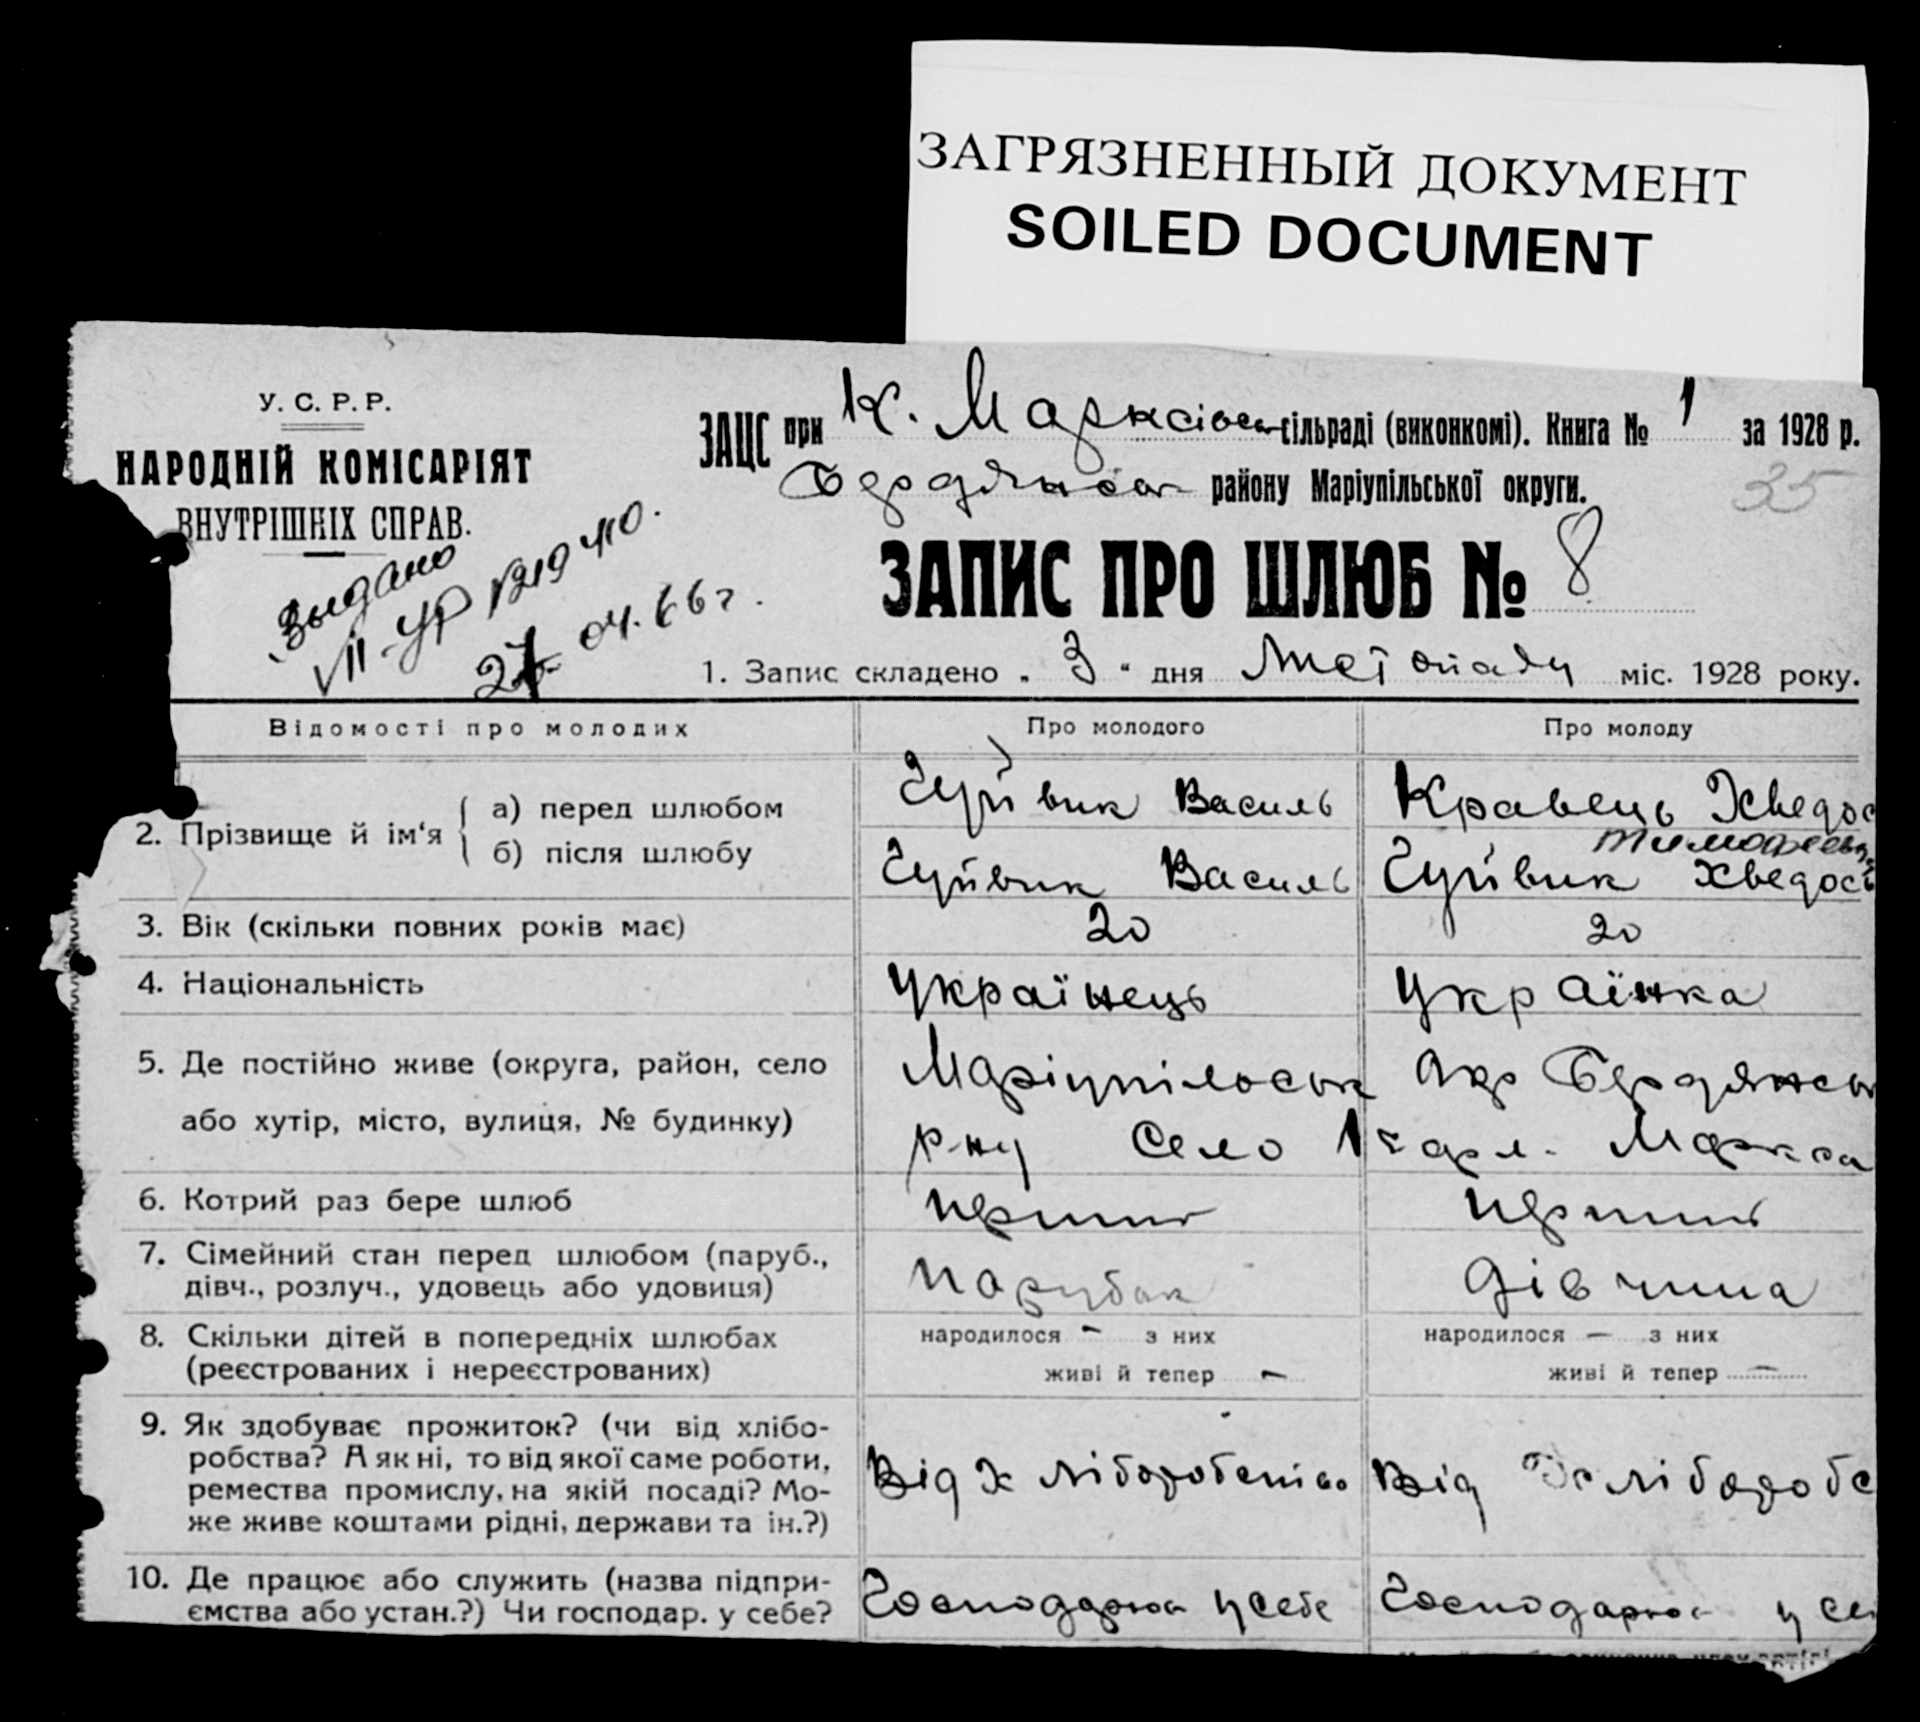 ЗАГРЯЗНЕННЫЙ ДОКУМЕНТ
SOILED DOCUMENT
У. С. Р. Р.
НАРОДНІЙ КОМІСАРІЯТ
ВНУТРІШНІХ СПРАВ.
ЗАЦС при К. Марксівськ сільраді (виконкомі). Книга № 1 за 1928 р.
Бердянськ району Маріупільської округи.
35
Выдано
04.66 г.
ЗАПИС ПРО ШЛЮБ № 8
1. Запис складено „ 3 “ дня Листопаду міс. 1928 року.
Відомості про молодих
Про молодого
Про молоду
2. Прізвище й ім‘я
а) перед шлюбом
Гуйвик Василь
Кравець Хведос
Тимофеевн
б) після шлюбу
Гуйвик Василь
Гуйвик Хведось
3. Вік (скільки повних років має)
20
20
4. Національність
Українець
Українка
5. Де постійно живе (округа, район, село
або хутір, місто, вулиця, № будинку)
Маріупільськ Окр Бердянськ
р-ну Село Карл. Маркса
6. Котрий раз бере шлюб
перший
перший
7. Сімейний стан перед шлюбом (паруб.,
дівч., розлуч., удовець або удовиця)
Парубак
Дівчина
8. Скільки дітей в попередніх шлюбах
(реєстрованих і нереєстрованих)
народилося – з них
живі й тепер –
народилося – з них
живі й тепер –
9. Як здобуває прожиток? (чи від хлібо-
робства? А як ні, то від якої саме роботи,
ремества промислу, на якій посаді? Мо-
же живе коштами рідні, держави та ін.?)
Від Хліборобство
Від Хліборобс
10. Де працює або служить (назва підпри-
ємства або устан.?) Чи господар. у себе?
Господарює у себе
Господарює у се